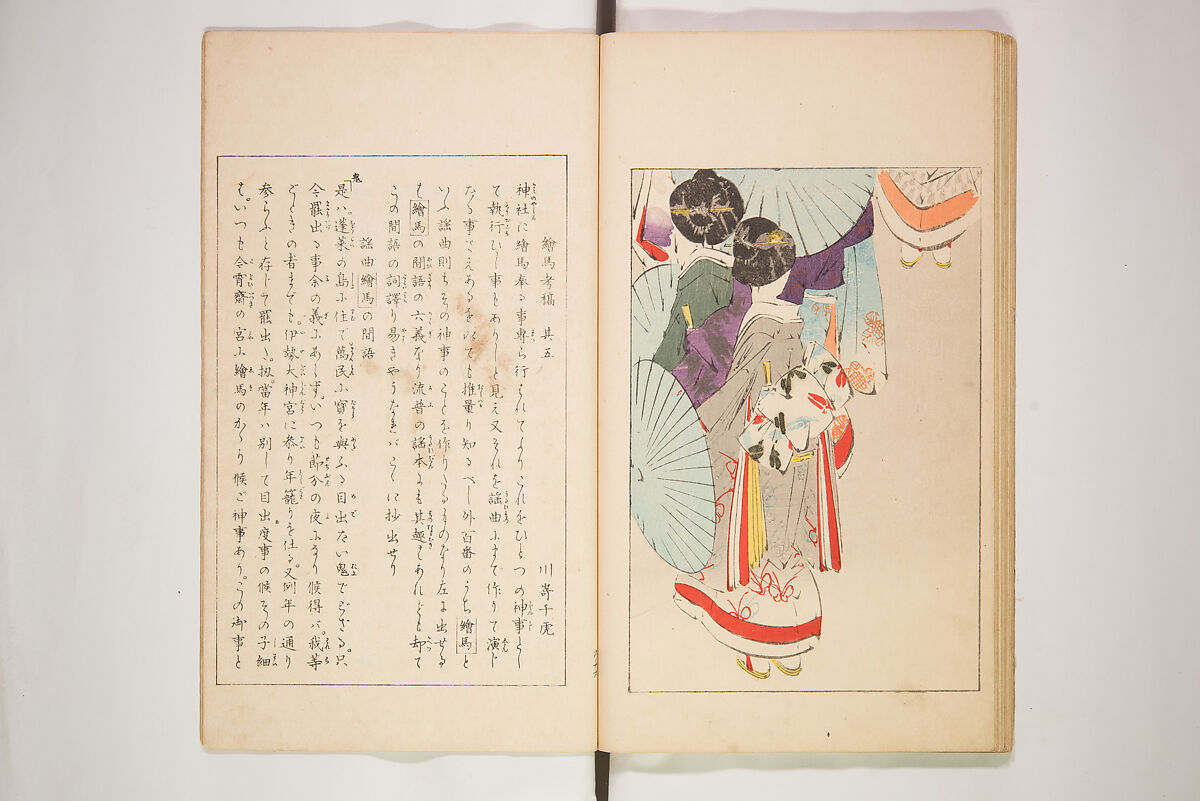 繪馬考稿 其五
川嵜千虎
神社に繪馬奉る事専ら行はれてよりこれをひとつの神事とし
て執行ひし事もありしと見え又それを謡曲にまで作りて演じ
たる事さへあるをいても推量り知るべし外百番のうち繪馬と
いふ謡曲則ちその神事のことを作りたるものなり左に出せる
は繪馬の間語の六義なり流普の謡本にも其趣はあれども却て
この間語の詞譯り易きやうなればこゝに抄出せり
謡曲繪馬の間語
鬼「是ハ蓬莱の島に住で萬民に寳を與ふる目出たい鬼でござる。只
今罷出る事余の義にあらず。いつも節分の夜になり候得バ。我等
ごときの者までも。伊勢大神宮に参り年籠りを仕る。又何年の通り
参らふと存じて罷出た。扨當年ハ別して目出度事の候その子細
は。いつも今宵齋の宮に繪馬のかゝり候ご神事あり。この御事と